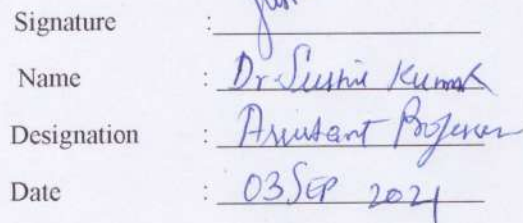 Signature :
Name : Dr. Sushil Kumar
Designation : Assistant Professor
Date : 03 SEP 2021